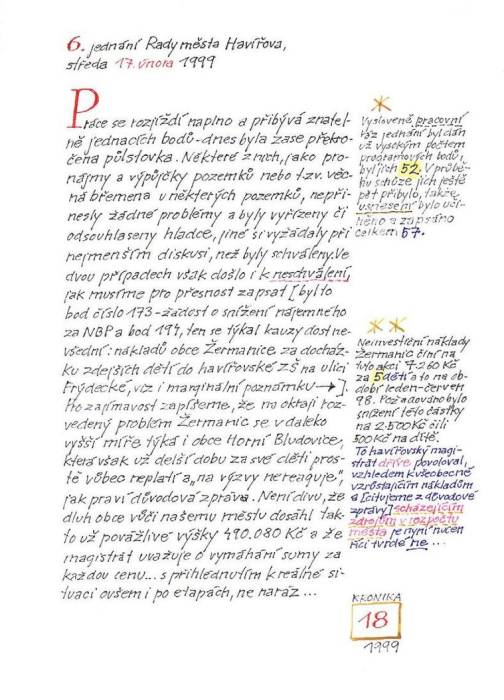 6. jednání Rady města Havířova,
středa 17. února 1999
Práce se rozjíždí naplno a přibývá znatel-
ně jednacích bodů - dnes byla zase překro-
čena půlstovka. Některé z nich, jako pro-
nájmy a výpůjčky pozemků nebo tzv. věc-
ná břemena u některých pozemků, nepři-
nesly žádné problémy a byly vyřízeny či
odsouhlaseny hladce, jiné si vyžádaly při
nejmenším diskusi, než byly schváleny. Ve
dvou případech však došlo i k neschválení,
jak musíme pro přesnost zapsat [bylto
bod číslo 173 - žádost o snížení nájemného
za NBP a bod 194, ten se týkal kauzy dost ne-
všední: nákladů obce Žermanice za docház-
ku zdejších dětí do havířovské ZŠ na ulici
Frýdecké, viz i marginální poznámku →].
Pro zajímavost zapíšeme, že na oktaji roz-
vedený problém Žermanic se v daleko
vyšší míře týká i obce Horní Bludovice,
která však už delší dobu za své děti pros-
tě vůbec neplatí a „na výzvy nereaguje",
jak praví důvodová zpráva. Není divu, že
dluh obce vůči našemu městu dosáhl tak-
to už povážlivé výšky 490.080 Kč a že
magistrát uvažuje o vymáhání sumy za
každou cenu... s přihlédnutím k reálné si-
tuaci ovšem i po etapách, ne naráz ...
*
Vysloveně pracovní
ráz jednání byl dán
už vysokým počtem
programových bodů,
byl jich 52. V průbě-
hu schůze jich ještě
pět přibylo, takže
usnesení bylo uči-
něno a zapsáno
celkem 57.
**
Neinvestiční náklady
Žermanic činí na
tuto akci 7.260 Kč
za 5 dětí a to na ob-
dobí leden-červen
98. Požadováno bylo
snížení této částky
na 2.500 Kč čili
500 Kč na dítě.
To havířovský magi-
strát dříve povoloval,
vzhledem k všeobecně
vzrůstajícím nákladům
a [citujeme z důvodové
zprávy] scházejícím
zdrojům v rozpočtu
města je nyní nucen
říci tvrdé ne ...
KRONIKA
18
1999